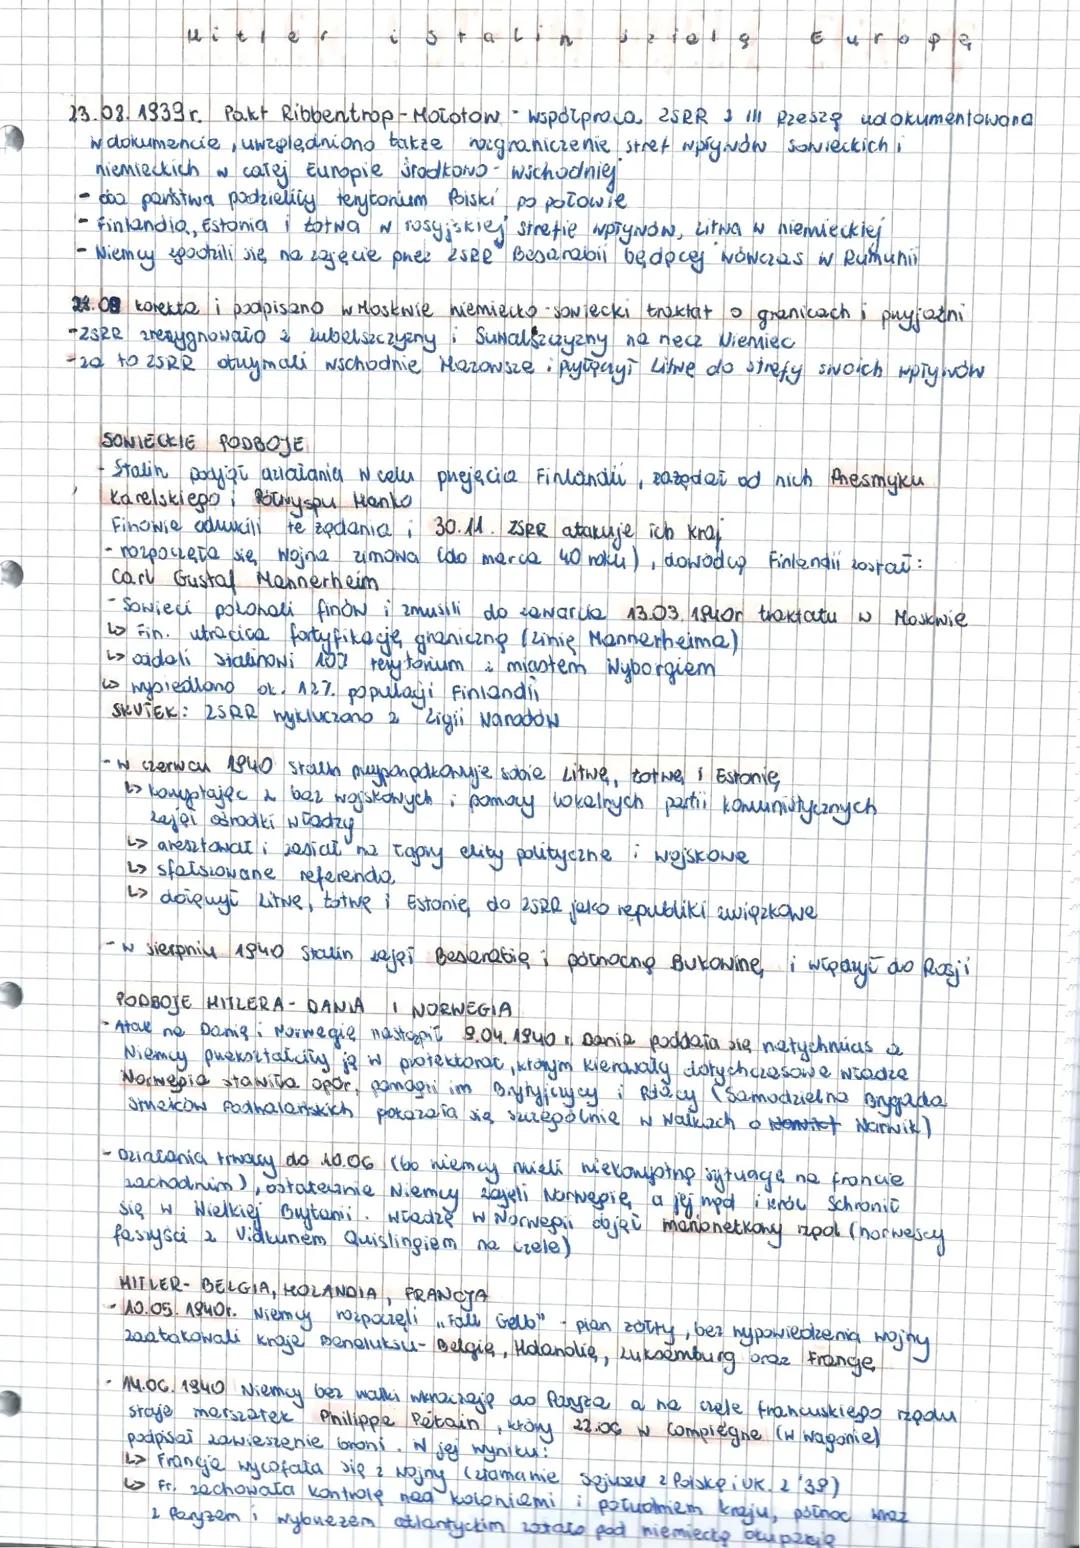 Hitler i Stalin dzielą Europę
23.08.1939r. Pakt Ribbentrop-Mołotow - współpraca ZSRR z III Rzeszą udokumentowana
w dokumencie, uwzględniono także rozgraniczenie stref wpływów sowieckich i
niemieckich w całej Europie środkowo-wschodniej
- oba państwa podzieliły terytorium Polski po połowie
- Finlandia, Estonia i Łotwa w rosyjskiej strefie wpływów, Litwa w niemieckiej
- Niemcy zgodzili się na zajęcie przez ZSRR Besarabii będącej wówczas w Rumunii
28.09 korekta i podpisano w Moskwie niemiecko-sowiecki traktat o granicach i przyjaźni
- ZSRR zrezygnowało z Lubelszczyzny i Suwalszczyzny na rzecz Niemiec
- za to ZSRR otrzymali wschodnie Mazowsze i przyłączył Litwę do strefy swoich wpływów
SOWIECKIE PODBOJE
- Stalin podjął działania w celu przejęcia Finlandii, zażądał od nich Przesmyku
Karelskiego i Półwyspu Hanko
Finowie odrzucili te żądania i 30.11. ZSRR atakuje ich kraj
- rozpoczęła się wojna zimowa (do marca 40 roku), dowódcą Finlandii został:
Carl Gustaf Mannerheim
- Sowieci pokonali finów i zmusili do zawarcia 13.03.1940r traktatu w Moskwie
↳ Fin. utraciła fortyfikację graniczną (Linię Mannerheima)
↳ oddali Stalinowi 10% terytorium z miastem Wyborgiem
↳ wysiedlono ok. 12% populacji Finlandii
SKUTEK: ZSRR wykluczono z Ligii Narodów
- w czerwcu 1940 Stalin przyporządkowuje sobie Litwę, Łotwę i Estonię
↳ korzystając z baz wojskowych i pomocy lokalnych partii komunistycznych
zajął ośrodki władzy
↳ aresztował i zesłał na łagry elity polityczne i wojskowe
↳ sfałszowane referenda
↳ dołączył Litwę, Łotwę i Estonię do ZSRR jako republiki związkowe
- w sierpniu 1940 Stalin zajął Besarabię i północną Bukowinę i włączył do Rosji
PODBOJE HITLERA - DANIA I NORWEGIA
- Atak na Danię i Norwegię nastąpił 9.04.1940r. Dania poddała się natychmiast a
Niemcy przekształciły ją w protektorat, którym kierowały dotychczasowe władze
Norwegia stawiła opór, pomogli im Brytyjczycy i Polacy (Samodzielna Brygada
Strzelców Podhalańskich pokazała się szczególnie w walkach o Narwik)
- Działania trwały do 10.06 (bo niemcy mieli niekorzystną sytuację na froncie
zachodnim), ostatecznie Niemcy zajęli Norwegię a jej rząd i król schronił
się w Wielkiej Brytanii. Władzę w Norwegii objął marionetkowy rząd (norwescy
faszyści z Vidkunem Quislingiem na czele)
HITLER - BELGIA, HOLANDIA, FRANCJA
- 10.05.1940r. Niemcy rozpoczęli „Fall Gelb" - plan żółty, bez wypowiedzenia wojny
zaatakowali kraje Beneluksu - Belgię, Holandię, Luksemburg oraz Francję
- 14.06.1940 Niemcy bez walki wkraczają do Paryża a na czele francuskiego rządu
staje marszałek Philippe Pétain, który 22.06 w Compiègne (w wagonie)
podpisał zawieszenie broni. W jej wyniku:
↳ Francja wycofała się z wojny (złamanie sojuszu z Polską i UK. z '39)
↳ Fr. zachowała kontrolę nad koloniami i południem kraju, północ wraz
z Paryżem i wybrzeżem atlantyckim została pod niemiecką okupacją